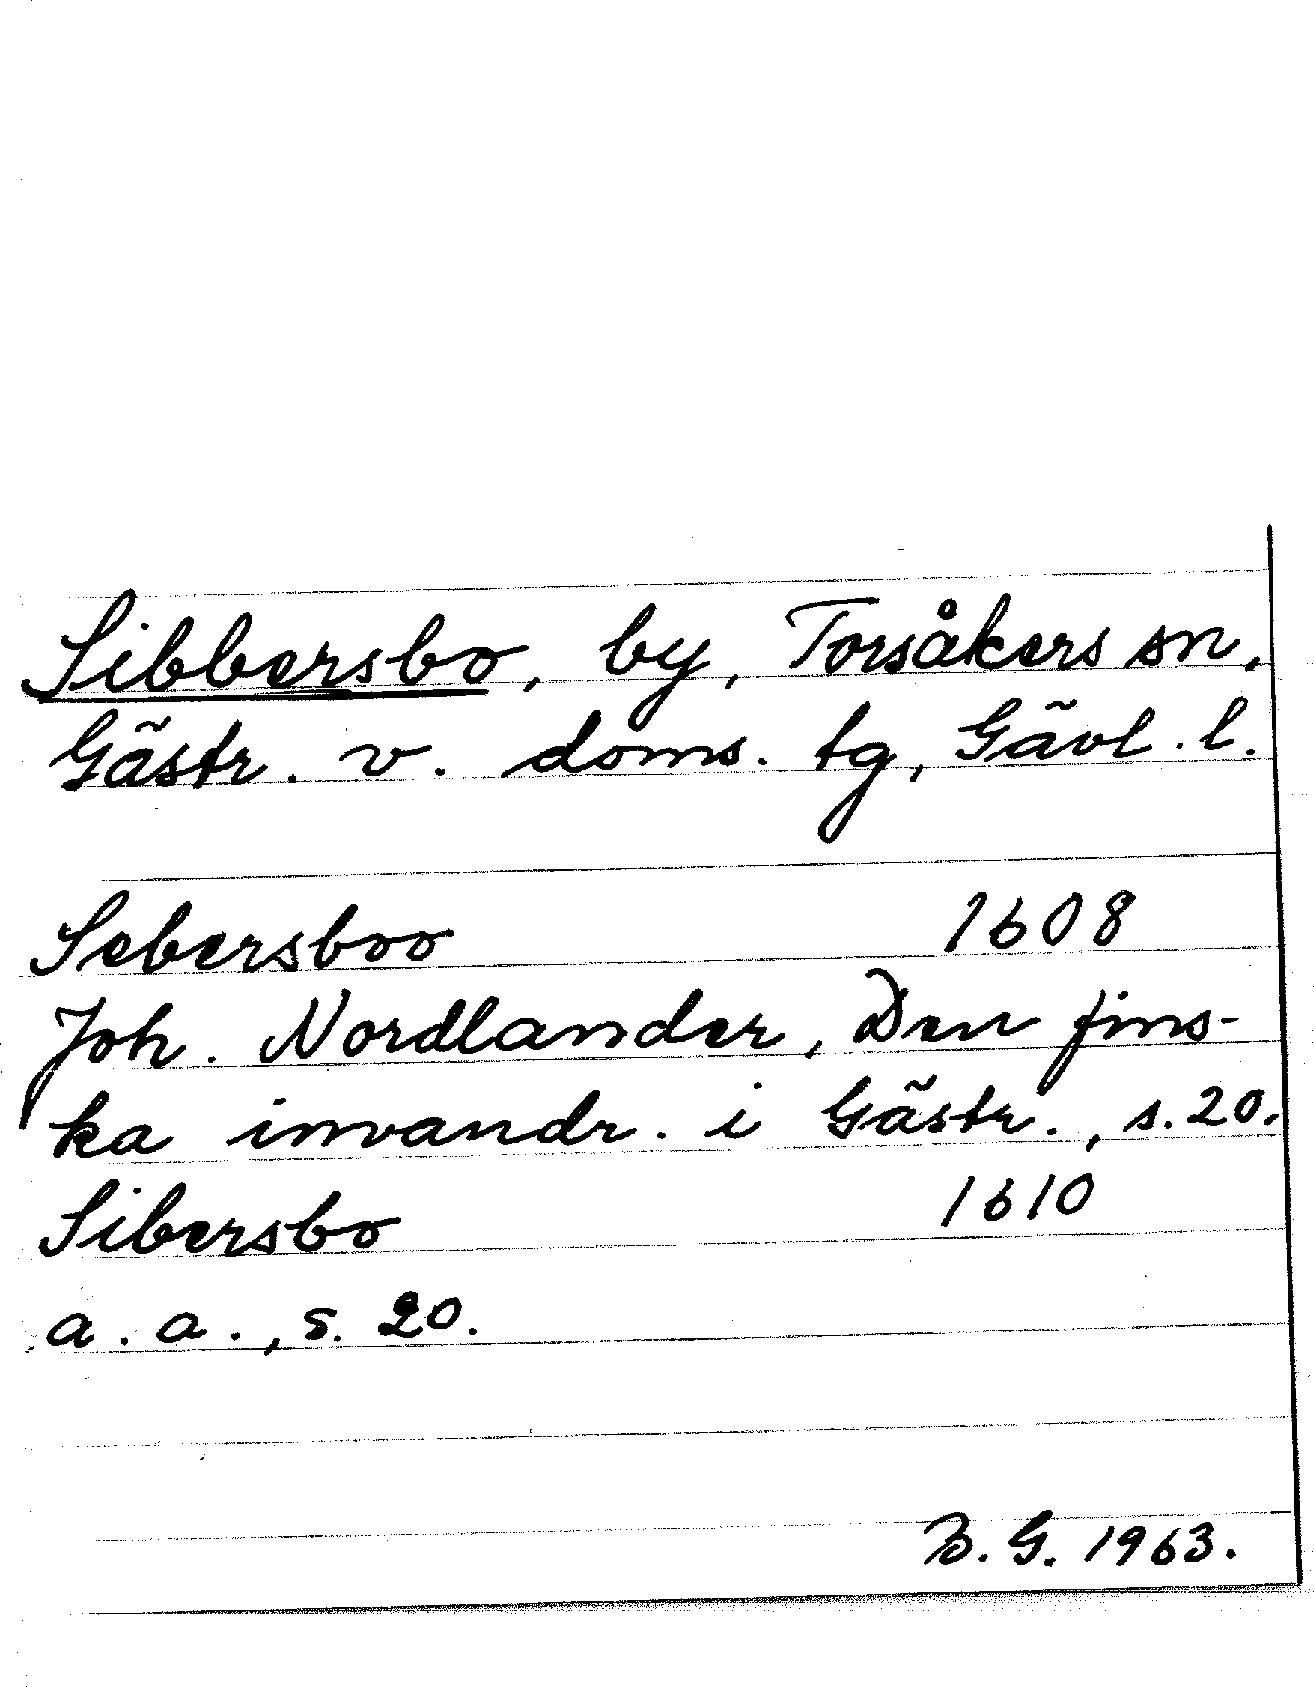 Sibbersbo, by, Torsåkers sn,
Gästr. v. doms. tg, Gävl. l.
Sebersboo 1608
Joh. Nordlander, Den fins-
ka invandr. i Gästr., s. 20.
Sibersbo 1610
a. a., s. 20.
B. G. 1963.